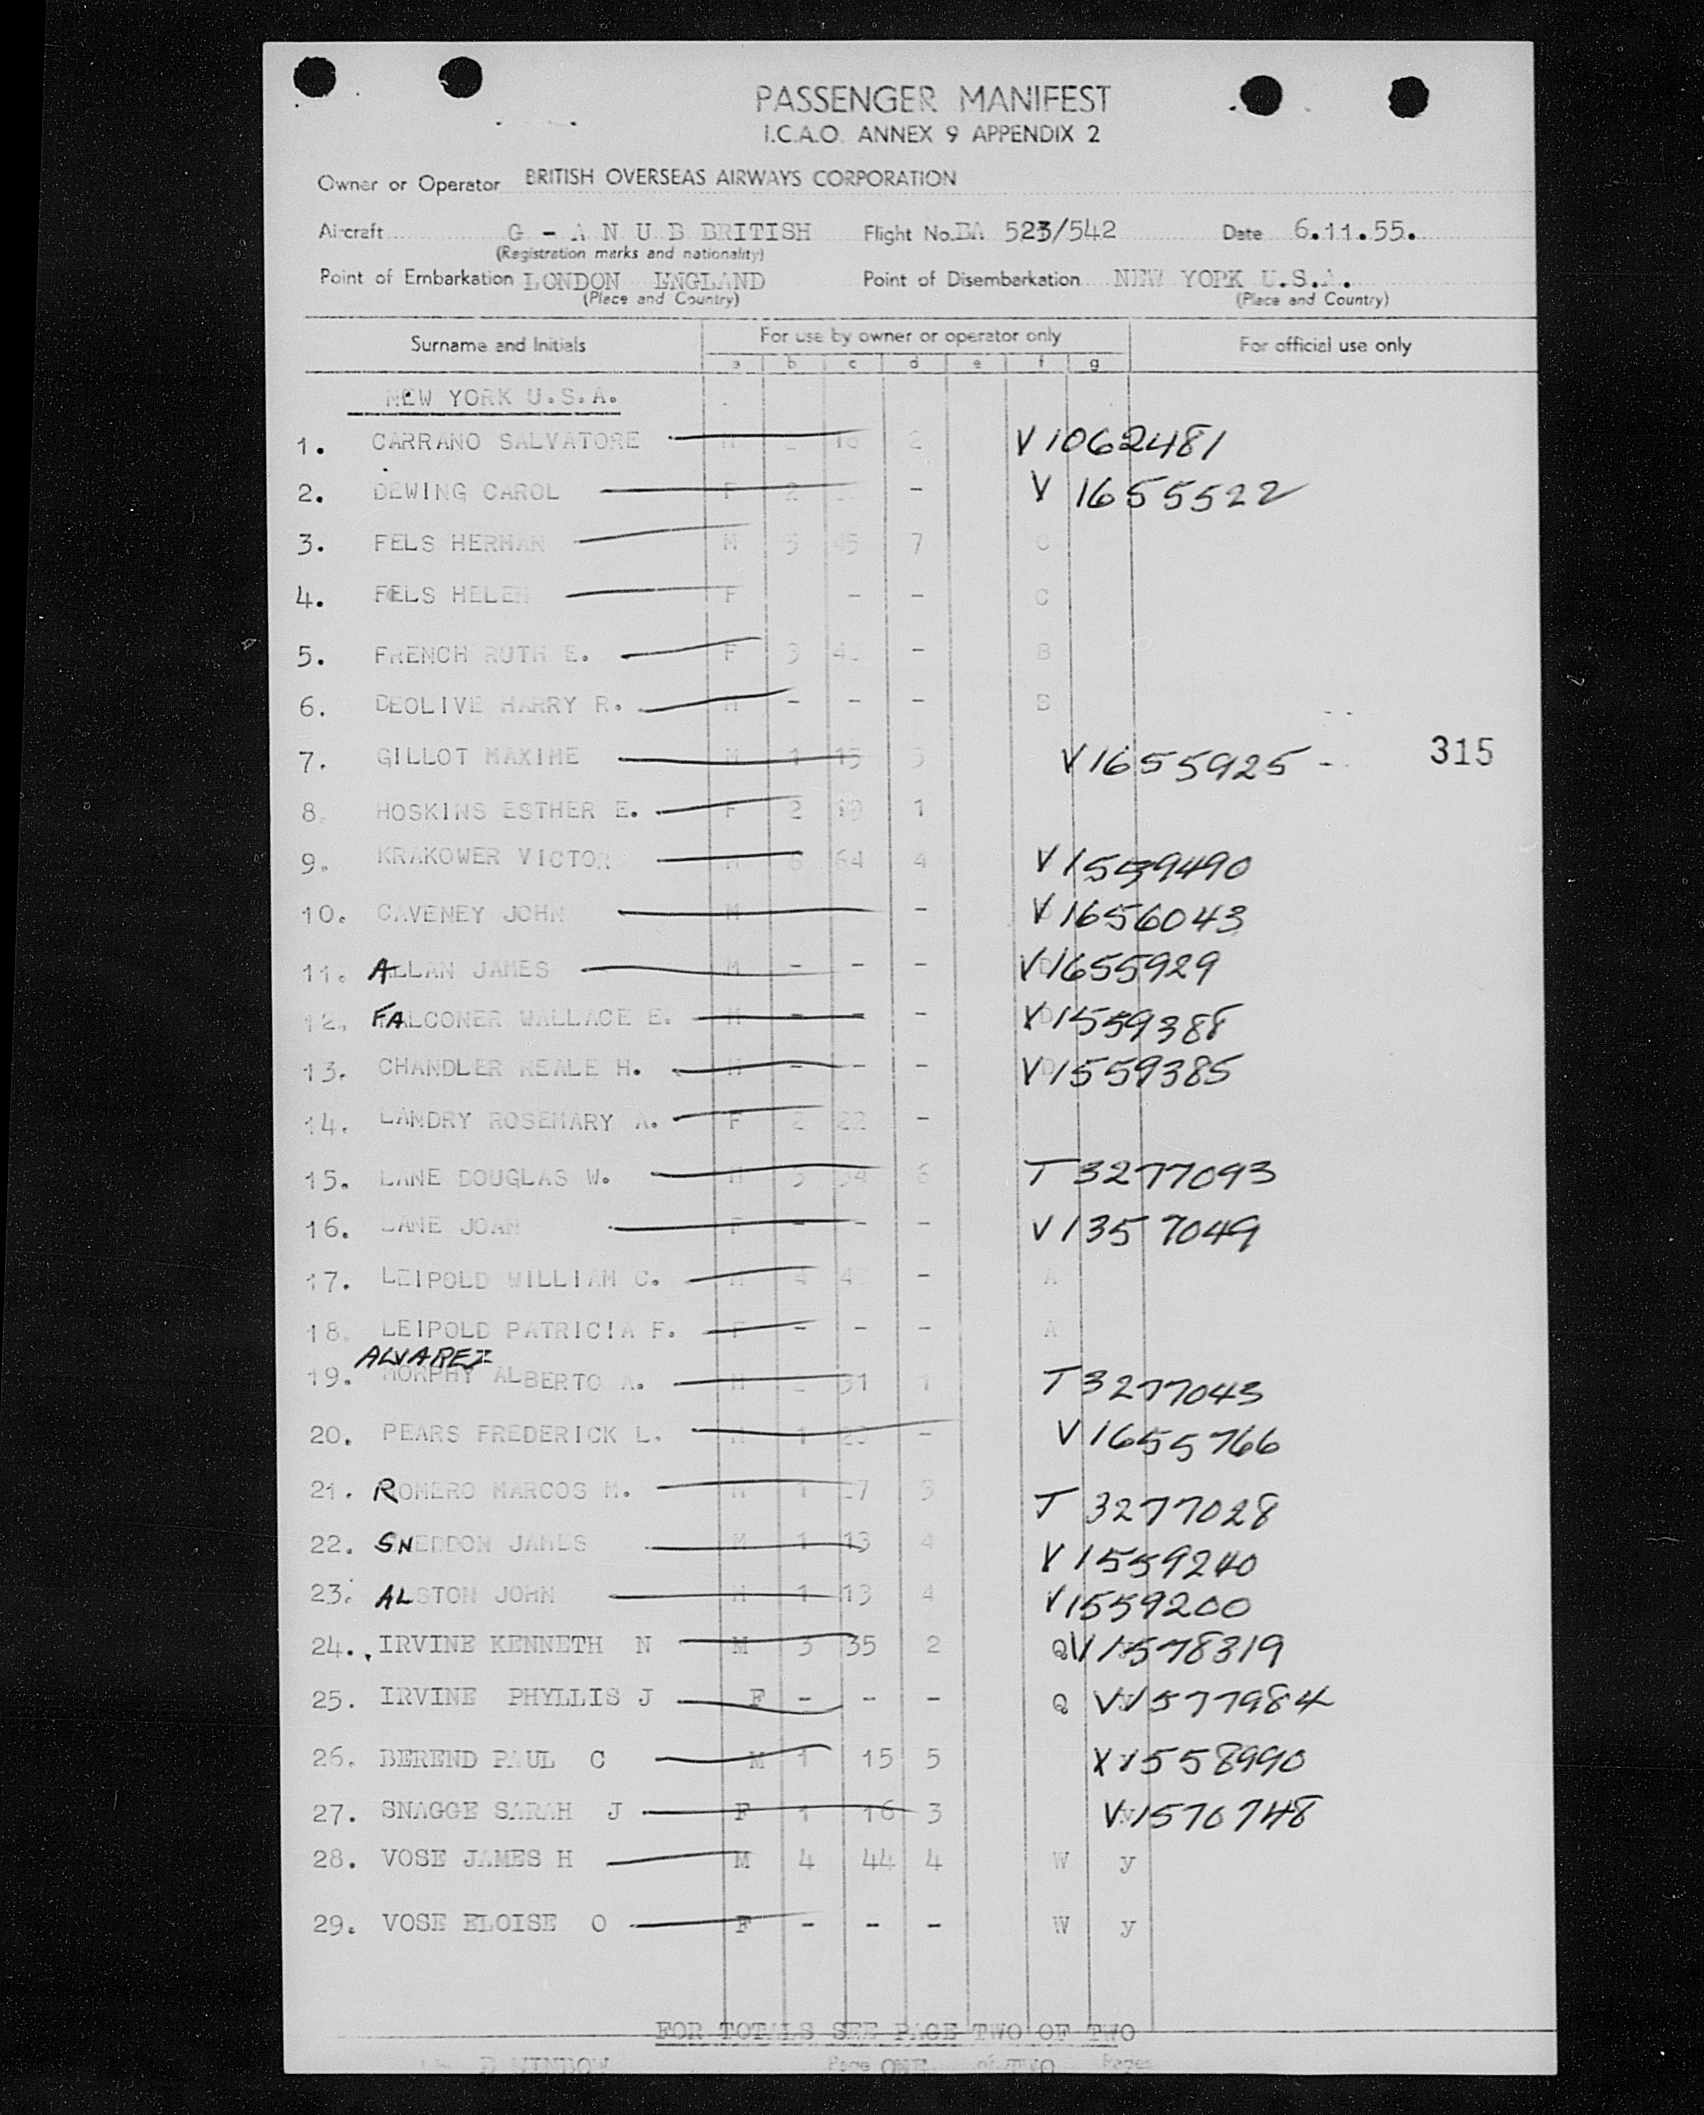 PASSENGER MANIFEST
I.C.A.O. ANNEX 9 APPENDIX 2
Owner or Operator BRITISH OVERSEAS AIRWAYS CORPORATION
Aircraft G - A N U B BRITISH Flight No. BA 523/542 Date 6.11.55.
(Registration marks and nationality)
Point of Embarkation LONDON ENGLAND Point of Disembarkation NEW YORK U.S.A.
(Place and Country) (Place and Country)
Surname and Initials For use by owner or operator only For official use only
a b c d e f g
NEW YORK U.S.A.
1. CARRANO SALVATORE M 2 V 1062481
2. DEWING CAROL F 2 - V 1655522
3. FELS HERMAN M 3 45 7 C
4. FELS HELEN F - - C
5. FRENCH RUTH E. F 3 - B
6. DEOLIVE HARRY R. M - - - B
7. GILLOT MAXIME M 1 15 V1655925 - 315
8. HOSKINS ESTHER E. F 2 1
9. KRAKOWER VICTOR M 6 64 4 V1559490
10. CAVENEY JOHN M - V1656043
11. ALLAN JAMES M - - - V1655929
12. FALCONER WALLACE E. M - - - V1559388
13. CHANDLER NEALE H. M - - - V1559385
14. LANDRY ROSEMARY A. F 2 22 -
15. LANE DOUGLAS W. M 3 34 6 T 3277093
16. LANE JOAN F - - - V1357049
17. LEIPOLD WILLIAM C. M 4 - A
18. LEIPOLD PATRICIA F. F - - - A
ALVAREZ
19. MORPHY ALBERTO A. M 31 1 T 3277043
20. PEARS FREDERICK L. M 1 - V1655766
21. ROMERO MARCOS M. M 1 T 3277028
22. SNEDDON JAMES M 1 13 4 V1559240
23. ALSTON JOHN M 1 13 4 V1559200
24. IRVINE KENNETH N M 3 35 2 Q V1578319
25. IRVINE PHYLLIS J F - - - Q V1577984
26. BEREND PAUL C M 1 15 5 V1558990
27. SNAGGE SARAH J F 1 16 3 V1570748
28. VOSE JAMES H M 4 44 4 W y
29. VOSE ELOISE O F - - - W y
FOR TOTALS SEE PAGE TWO OF TWO
Page ONE of TWO Pages